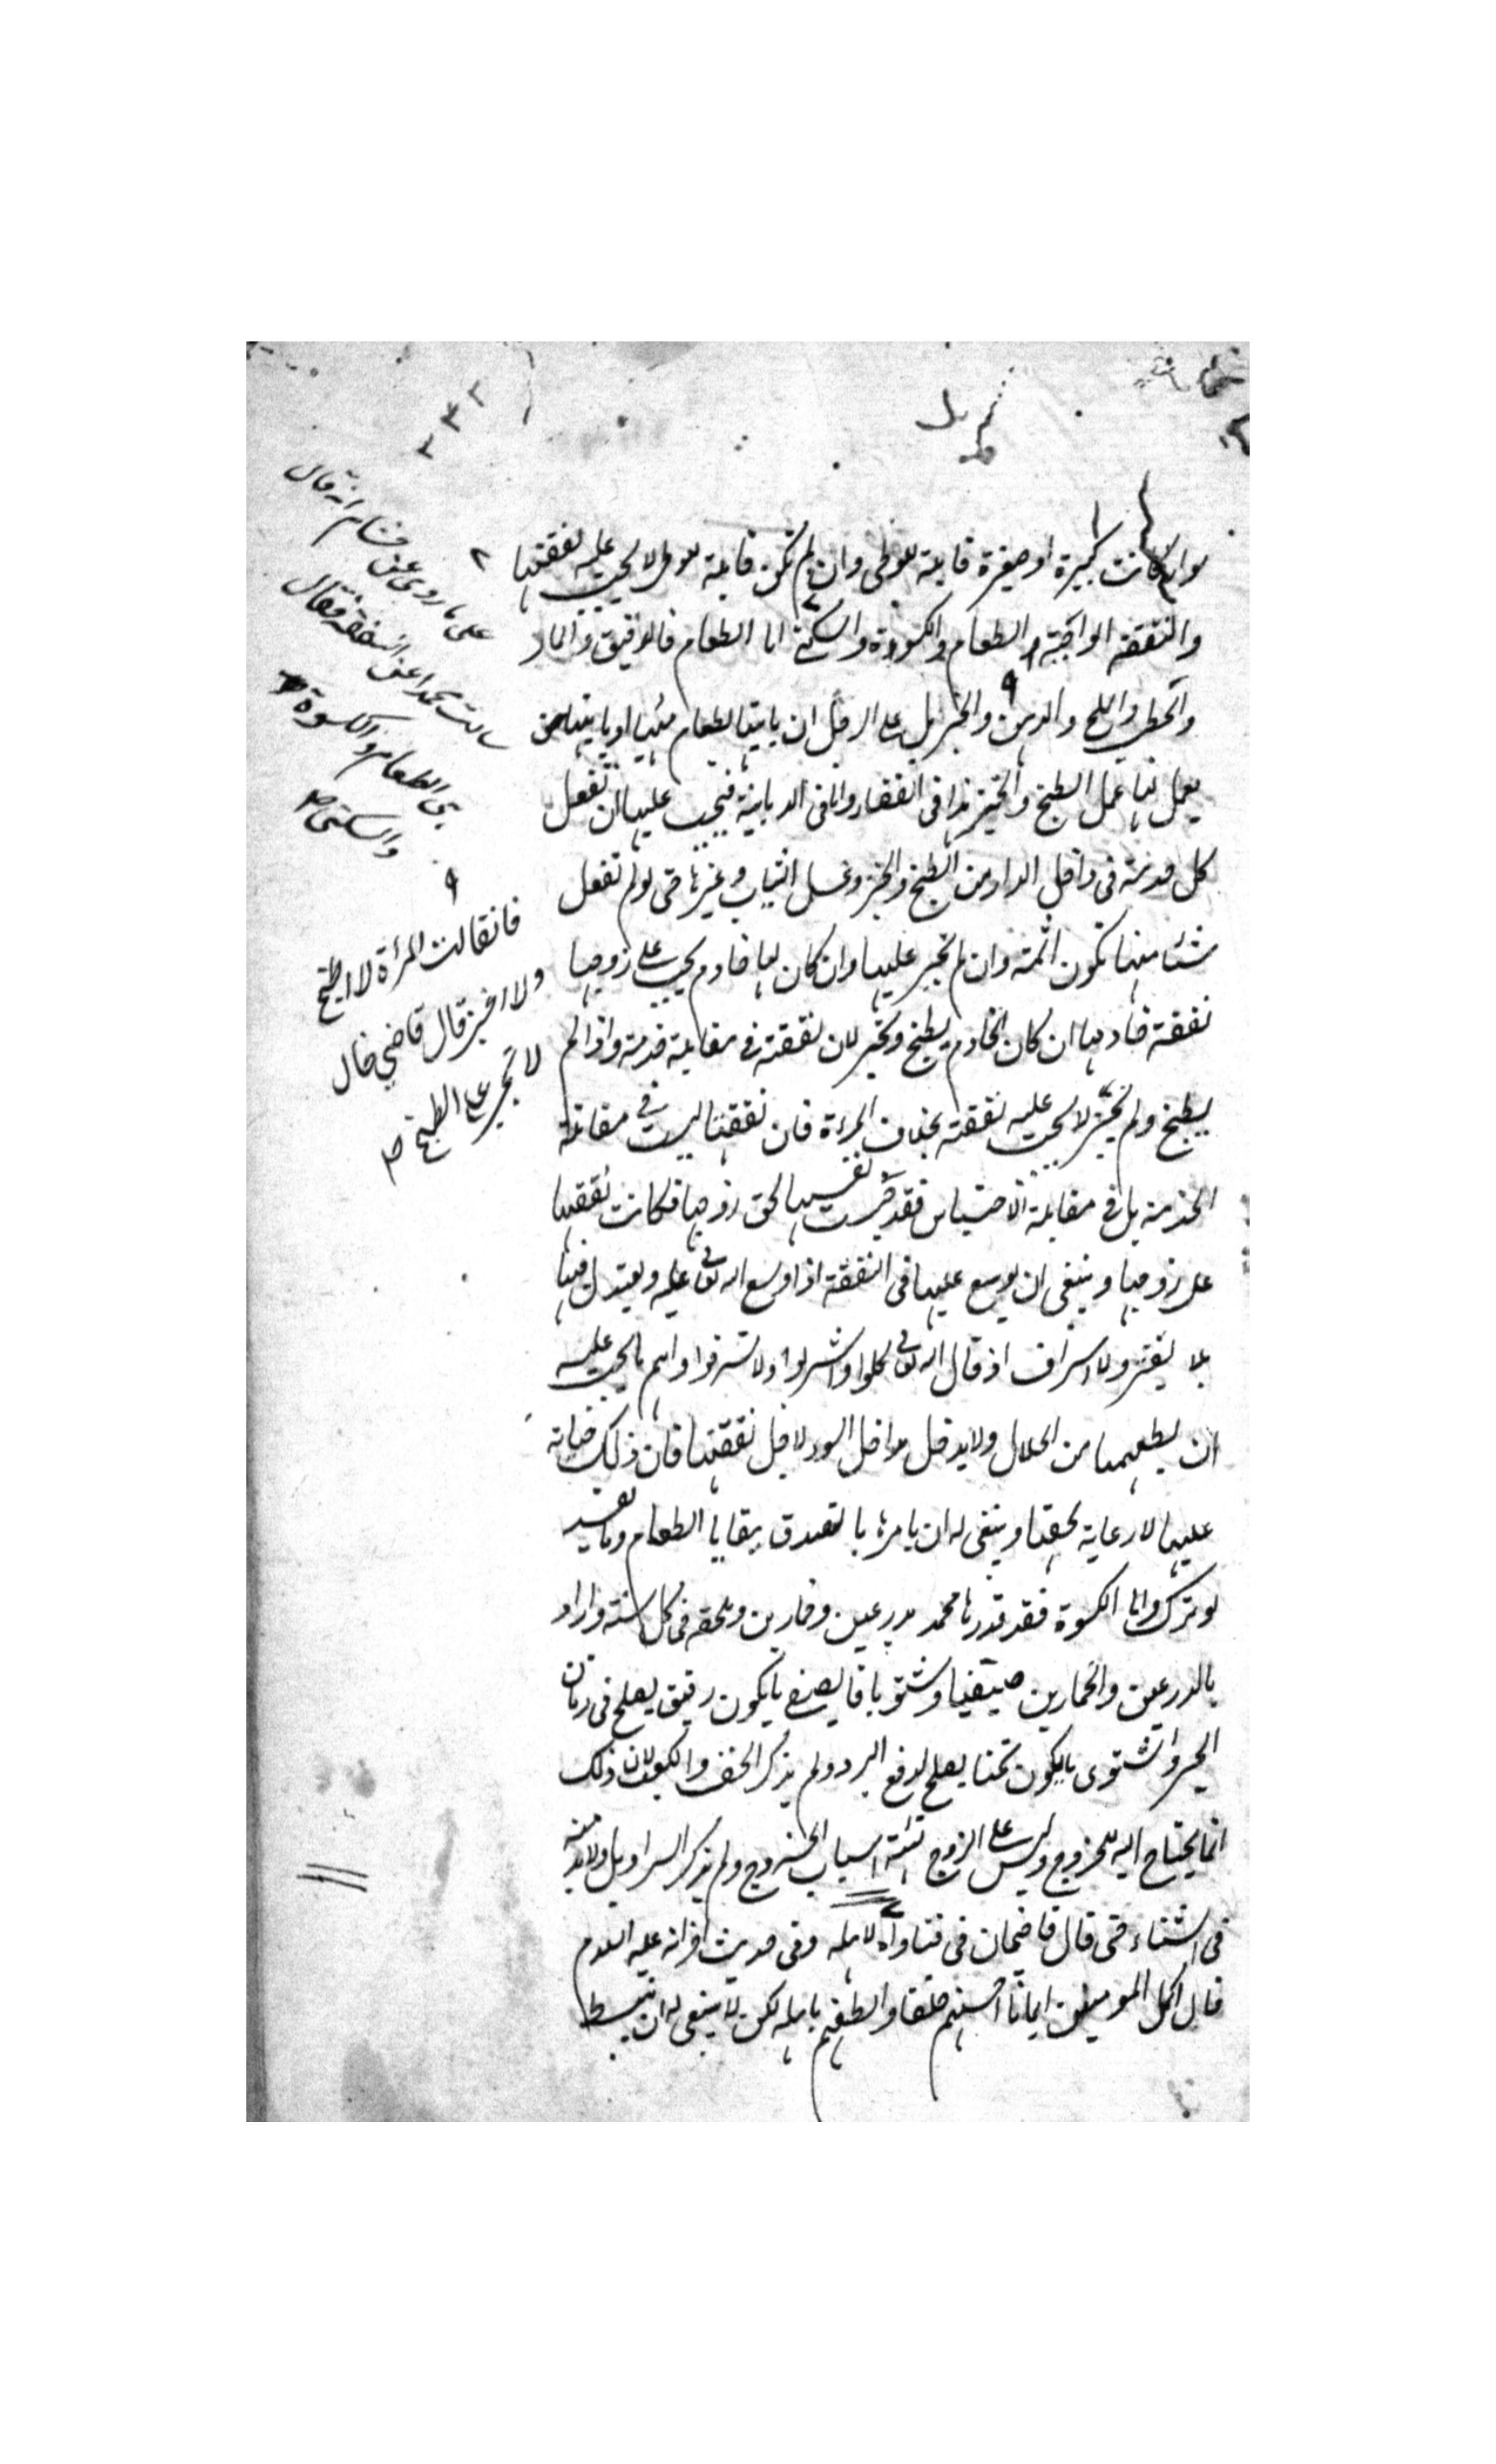 سواء كانت كبيرة او صغيرة قابلة للوطى وان لم تكن قابلة للوطى لا يجب عليه نفقتها
والنفقة الواجبة الطعام والكسوة والسكنى اما الطعام فالدقيق والماء
والحطب والملح والدهن والخبز بل على الرجل ان ياتيها بطعام مهيا او ياتيها بمن
يعمل لها عمل الطبخ والخبز هذا فى القضاء واما فى الديانة فيجب عليها ان تفعل
كل خدمة فى داخل الدار من الطبخ والخبز وغسل الثياب وغيرها حتى لو لم تفعل
شيئا منها تكون اثمة وان لم تجبر عليها وان كان لها خادم يجب على زوجها
نفقة خادمها ان كان الخادم يطبخ ويخبز لان نفقته فى مقابلة خدمته واذا لم
يطبخ ولم يخبز لا يجب عليه نفقته بخلاف المرءة فان نفقتها ليست فى مقابلة
الخدمة بل فى مقابلة الاحتباس فقد حبست نفسها لحق زوجها فكانت نفقتها
على زوجها وينبغى ان يوسع عليها فى النفقة اذا وسع الله تعالى عليه ويعتدل فيها
بلا تقتر ولا اسراف اذ قال الله تعالى كلوا واشربوا ولا تسرفوا واهم ما يجب عليه
ان يطعمها من الحلال ولا يدخل مداخل السوء لاجل نفقتها فان ذلك خيانة
عليها لا رعاية لحقها وينبغى له ان يامرها بالتصدق ببقايا الطعام وما يفسد
لو ترك واما الكسوة فقد قدرها محمد بدرعين وخمارين وملحفة فى كل سنة واراد
بالدرعين والخمارين صيفيا وشتويا فالصيفى ما يكون رقيق يصلح فى زمان
الحر والشتوى ما يكون ثخنا يصلح لدفع البرد ولم يذكر الخف والمكعب لان ذلك
انما يحتاج اليه للخروج وليس على الزوج تهيئة اسباب الخروج ولم يذكر السراويل ولا بد منه
فى الشتاء حتى قال قاضيخان فى فتاواه لاهله وفى حديث اخر انه عليه السلام
قال اكمل المومنين ايمانا احسنهم خلقا والطفهم باهله لكن لا ينبغى له ان يبسط
على ما روى عن هشام انه قال
سالت محمدا عن النفقة فقال
هى الطعام والكسوة
والسكنى صح
فان قالت المرأة لا اطبخ
ولا اخبز قال قاضى خان
لا تجبر على الطبخ صح